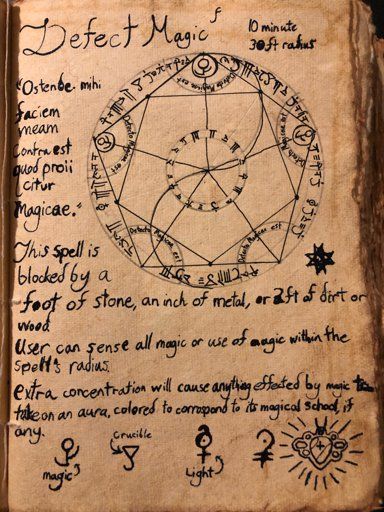 Detect Magic
10 minute
30ft radius
"Ostende mihi
faciem
meam
Contra est
quod proii
citur
Magicae."
Detecto Magicae est
Detecto Magicae est
Detecto Magicae est
Detecto Magicae est
Detecto Magicae est
This spell is
blocked by a
foot of stone, an inch of metal, or 2ft of dirt or
wood
User can sense all magic or use of magic within the
spell's radius.
extra concentration will cause anything effected by magic to
take on an aura, colored to correspond to its magical school, if
any.
magic
Crucible
Light